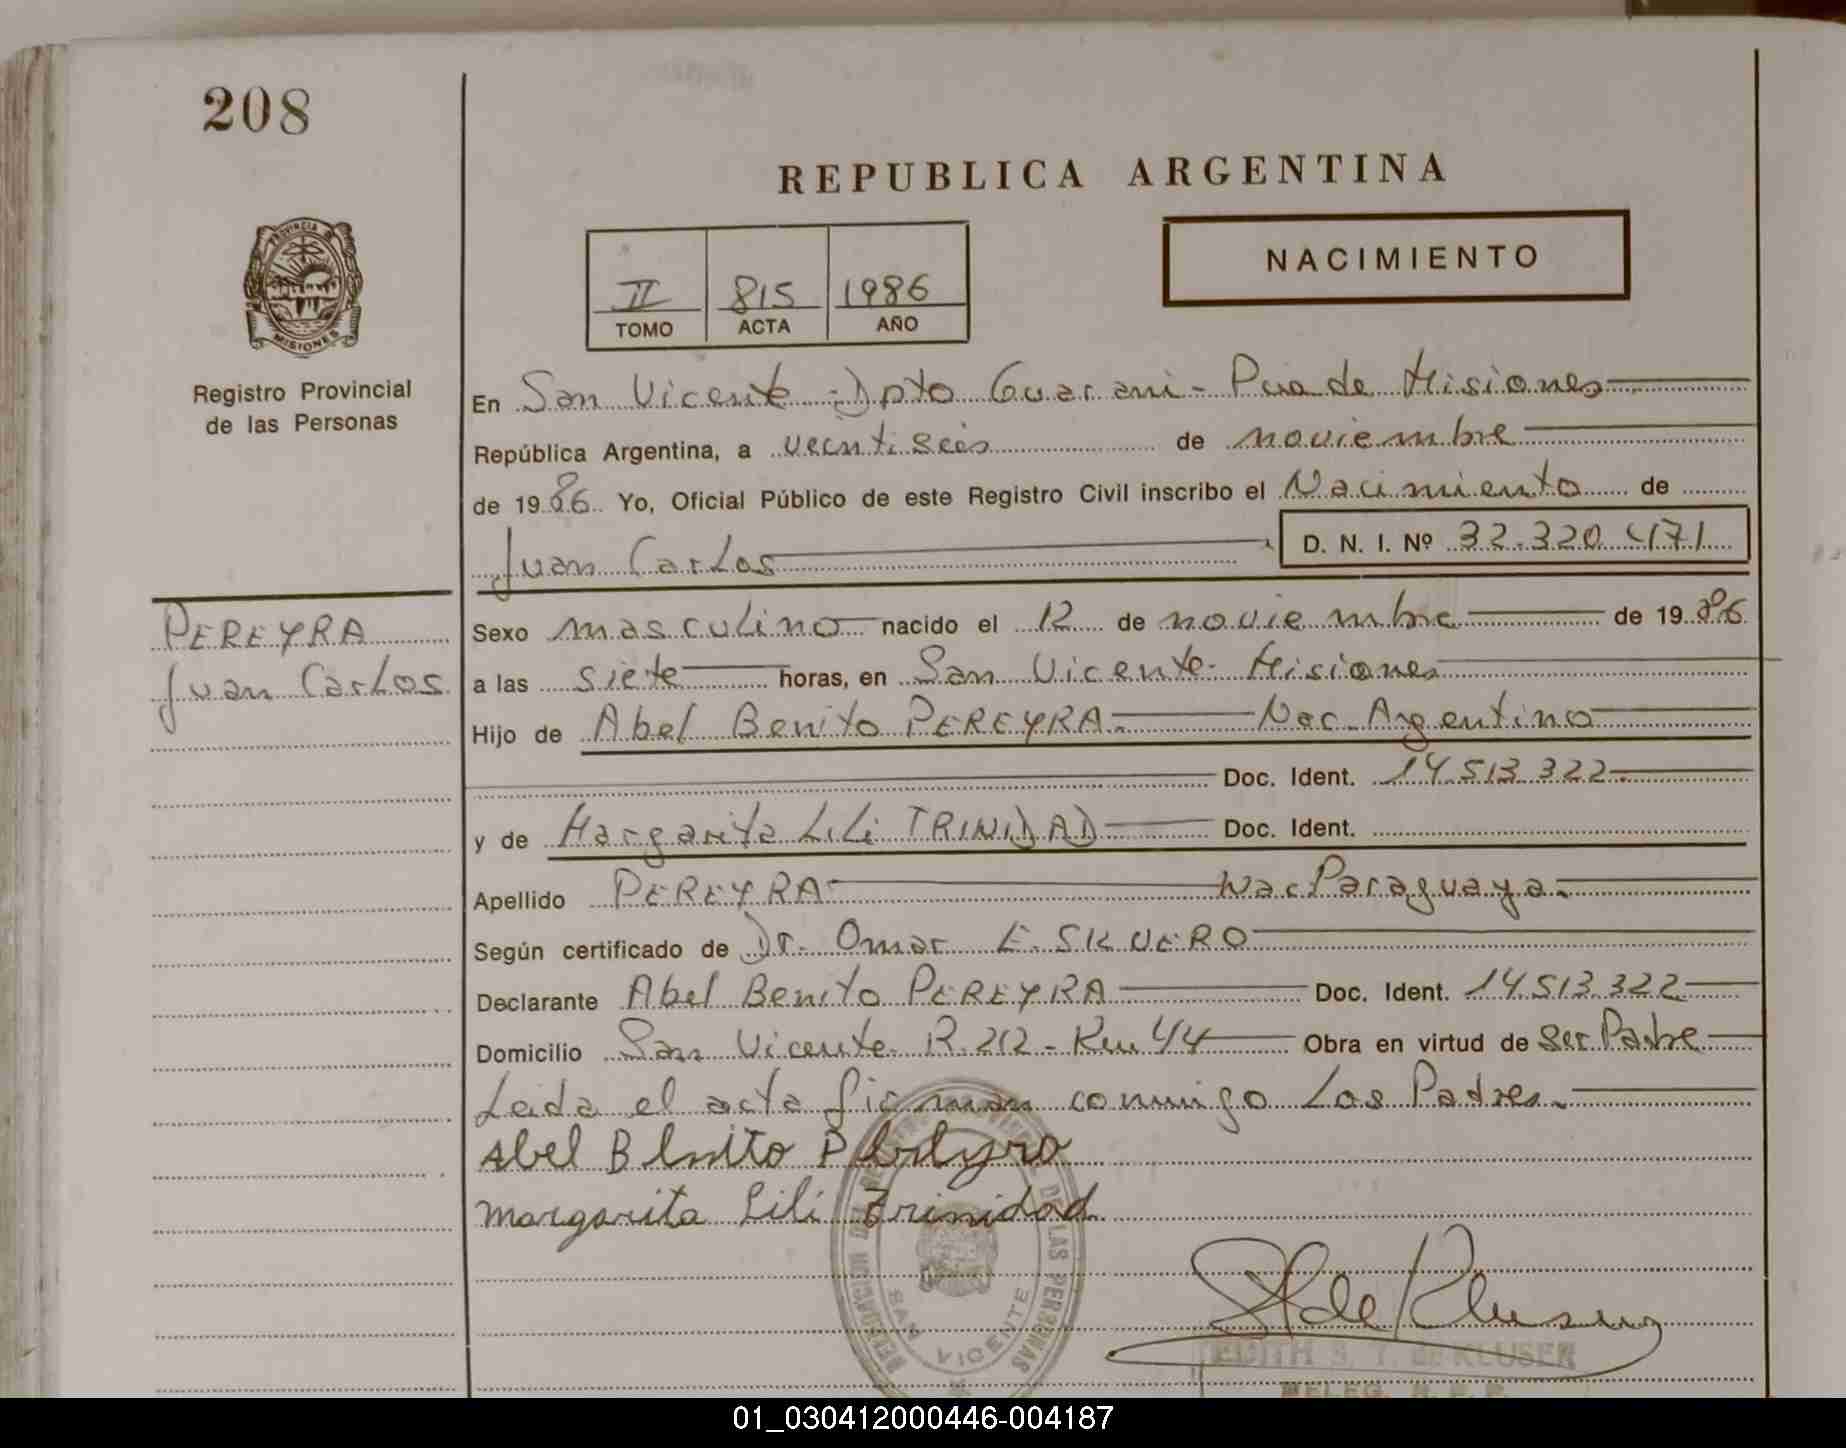 208
REPUBLICA ARGENTINA
PROVINCIA DE
MISIONES
NACIMIENTO
II 815 1986
TOMO ACTA AÑO
Registro Provincial
de las Personas
En San Vicente - Dpto Guarani - Pcia de Misiones
República Argentina, a veintiseis de noviembre
de 1986 Yo, Oficial Público de este Registro Civil inscribo el Nacimiento de
Juan Carlos D. N. I. Nº 32.320.471
PEREYRA
Juan Carlos
Sexo masculino nacido el 12 de noviembre de 1986
a las siete horas, en San Vicente - Misiones
Hijo de Abel Benito PEREYRA.- Nac. Argentino
Doc. Ident. 14.513.322
y de Margarita Lili TRINIDAD Doc. Ident.
Apellido PEREYRA Nac Paraguaya.
Según certificado de Dr. Omar E.
Declarante Abel Benito PEREYRA Doc. Ident. 14.513.322
Domicilio San Vicente R. 212 - Km 44 Obra en virtud de ser Padre
Leida el acta firman conmigo Los Padres.
Abel Benito Pereyra
Margarita Lili Trinidad
DE LAS PERSONAS
SAN VICENTE
de Kluser
EDITH S. T. de KLUSER
DELEG. R. P. P.
01_030412000446-004187